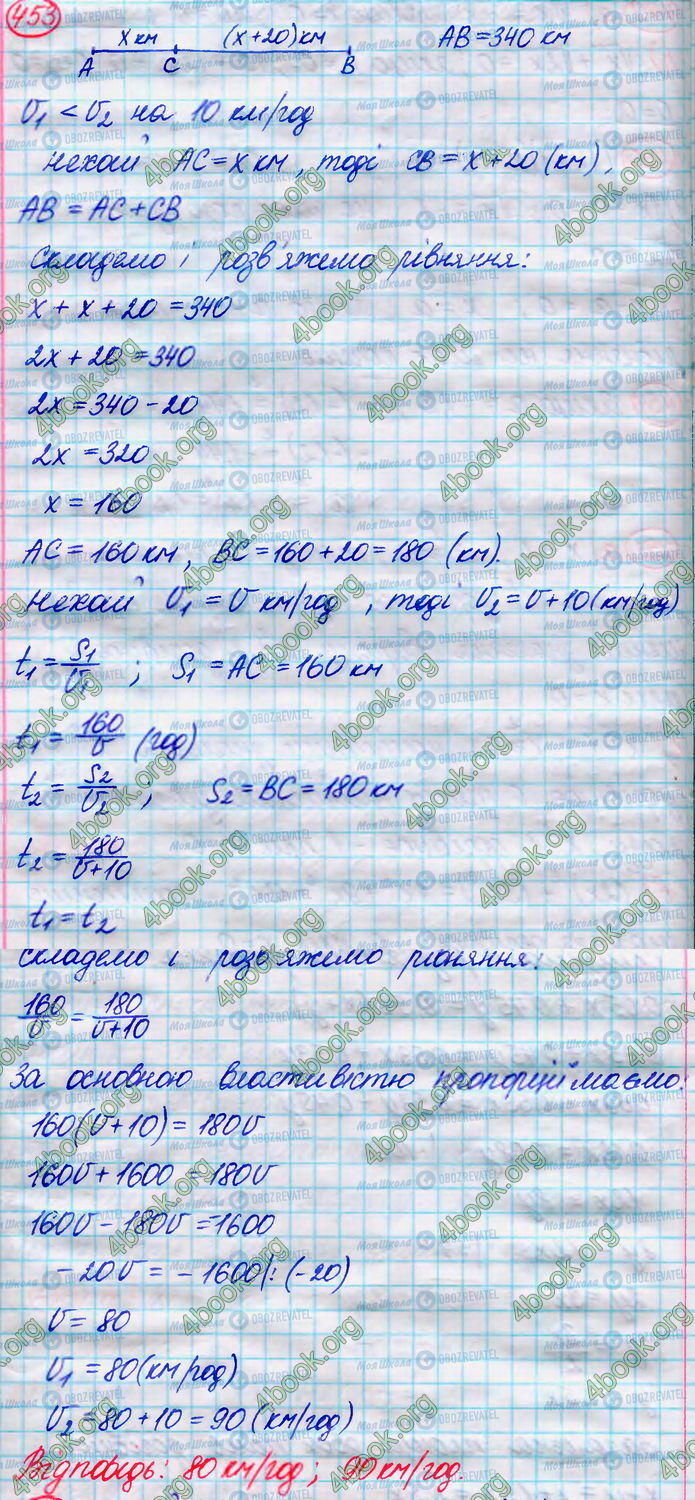 453
x км (x+20) км AB = 340 км
A C B
υ₁ < υ₂ на 10 км/год
нехай AC = x км, тоді CB = x + 20 (км),
AB = AC + CB
Складемо і розв'яжемо рівняння:
x + x + 20 = 340
2x + 20 = 340
2x = 340 - 20
2x = 320
x = 160
AC = 160 км, BC = 160 + 20 = 180 (км).
Нехай υ₁ = υ км/год, тоді υ₂ = υ + 10 (км/год)
t₁ = S₁/υ₁ ; S₁ = AC = 160 км
t₁ = 160/υ (год)
t₂ = S₂/υ₂ ; S₂ = BC = 180 км
t₂ = 180/(υ+10)
t₁ = t₂
складемо і розв'яжемо рівняння:
160/υ = 180/(υ+10)
За основною властивістю пропорції маємо:
160(υ + 10) = 180υ
160υ + 1600 = 180υ
160υ - 180υ = -1600
-20υ = -1600 |: (-20)
υ = 80
υ₁ = 80 (км/год)
υ₂ = 80 + 10 = 90 (км/год)
Відповідь: 80 км/год; 90 км/год.
4book.org
Моя Школа OBOZREVATEL